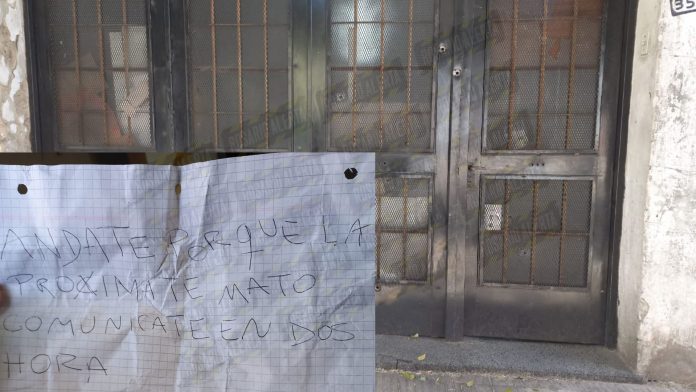 35
ANDATE PORQUE LA
PROXIMATE MATO
COMUNICATE EN DOS
HORA